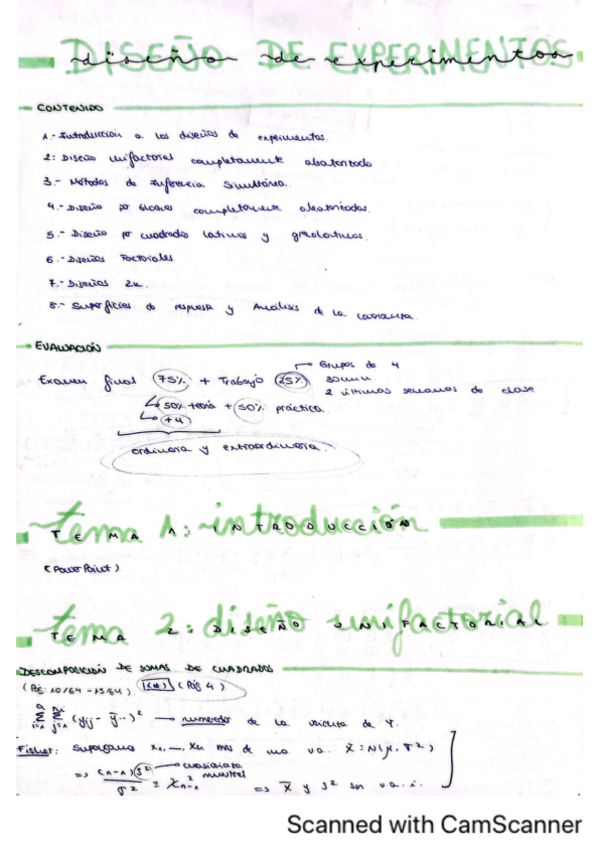 DISEÑO DE EXPERIMENTOS
diseño de experimentos
CONTENIDO
1.- Introducción a los diseños de experimentos.
2.- Diseño unifactorial completamente aleatorizado
3.- Métodos de Inferencia Simultánea.
4.- Diseño por bloques completamente aleatorizados.
5.- Diseño por cuadrados latinos y grecolatinos.
6.- Diseños Factoriales
7.- Diseños 2k.
8.- Superficies de respuesta y Análisis de la covarianza.
EVALUACIÓN
Examen final (75%) + Trabajo (25%) → Grupos de 4
30 min
2 últimas semanas de clase
↳ 50% teoría + 50% práctica.
↳ (+4)
ordinaria y extraordinaria.
tema 1: introducción
TEMA 1: INTRODUCCIÓN
(PowerPoint)
tema 2: diseño unifactorial
TEMA 2: DISEÑO UNIFACTORIAL
DESCOMPOSICIÓN DE SUMAS DE CUADRADOS
(Pág: 10/64 - 15/64) (**) (Pág 4)
Σ Σ (yij - ȳ..)² → numerador de la varianza de Y.
Fisher: Supongamos x1, ..., xn mas de una v.a. X ≡ N(μ, σ²)
⇒ (n-1) s² / σ² ≡ χ² n-1 → cuasivarianza muestral
⇒ x̄ y s² son v.a.i.
Scanned with CamScanner